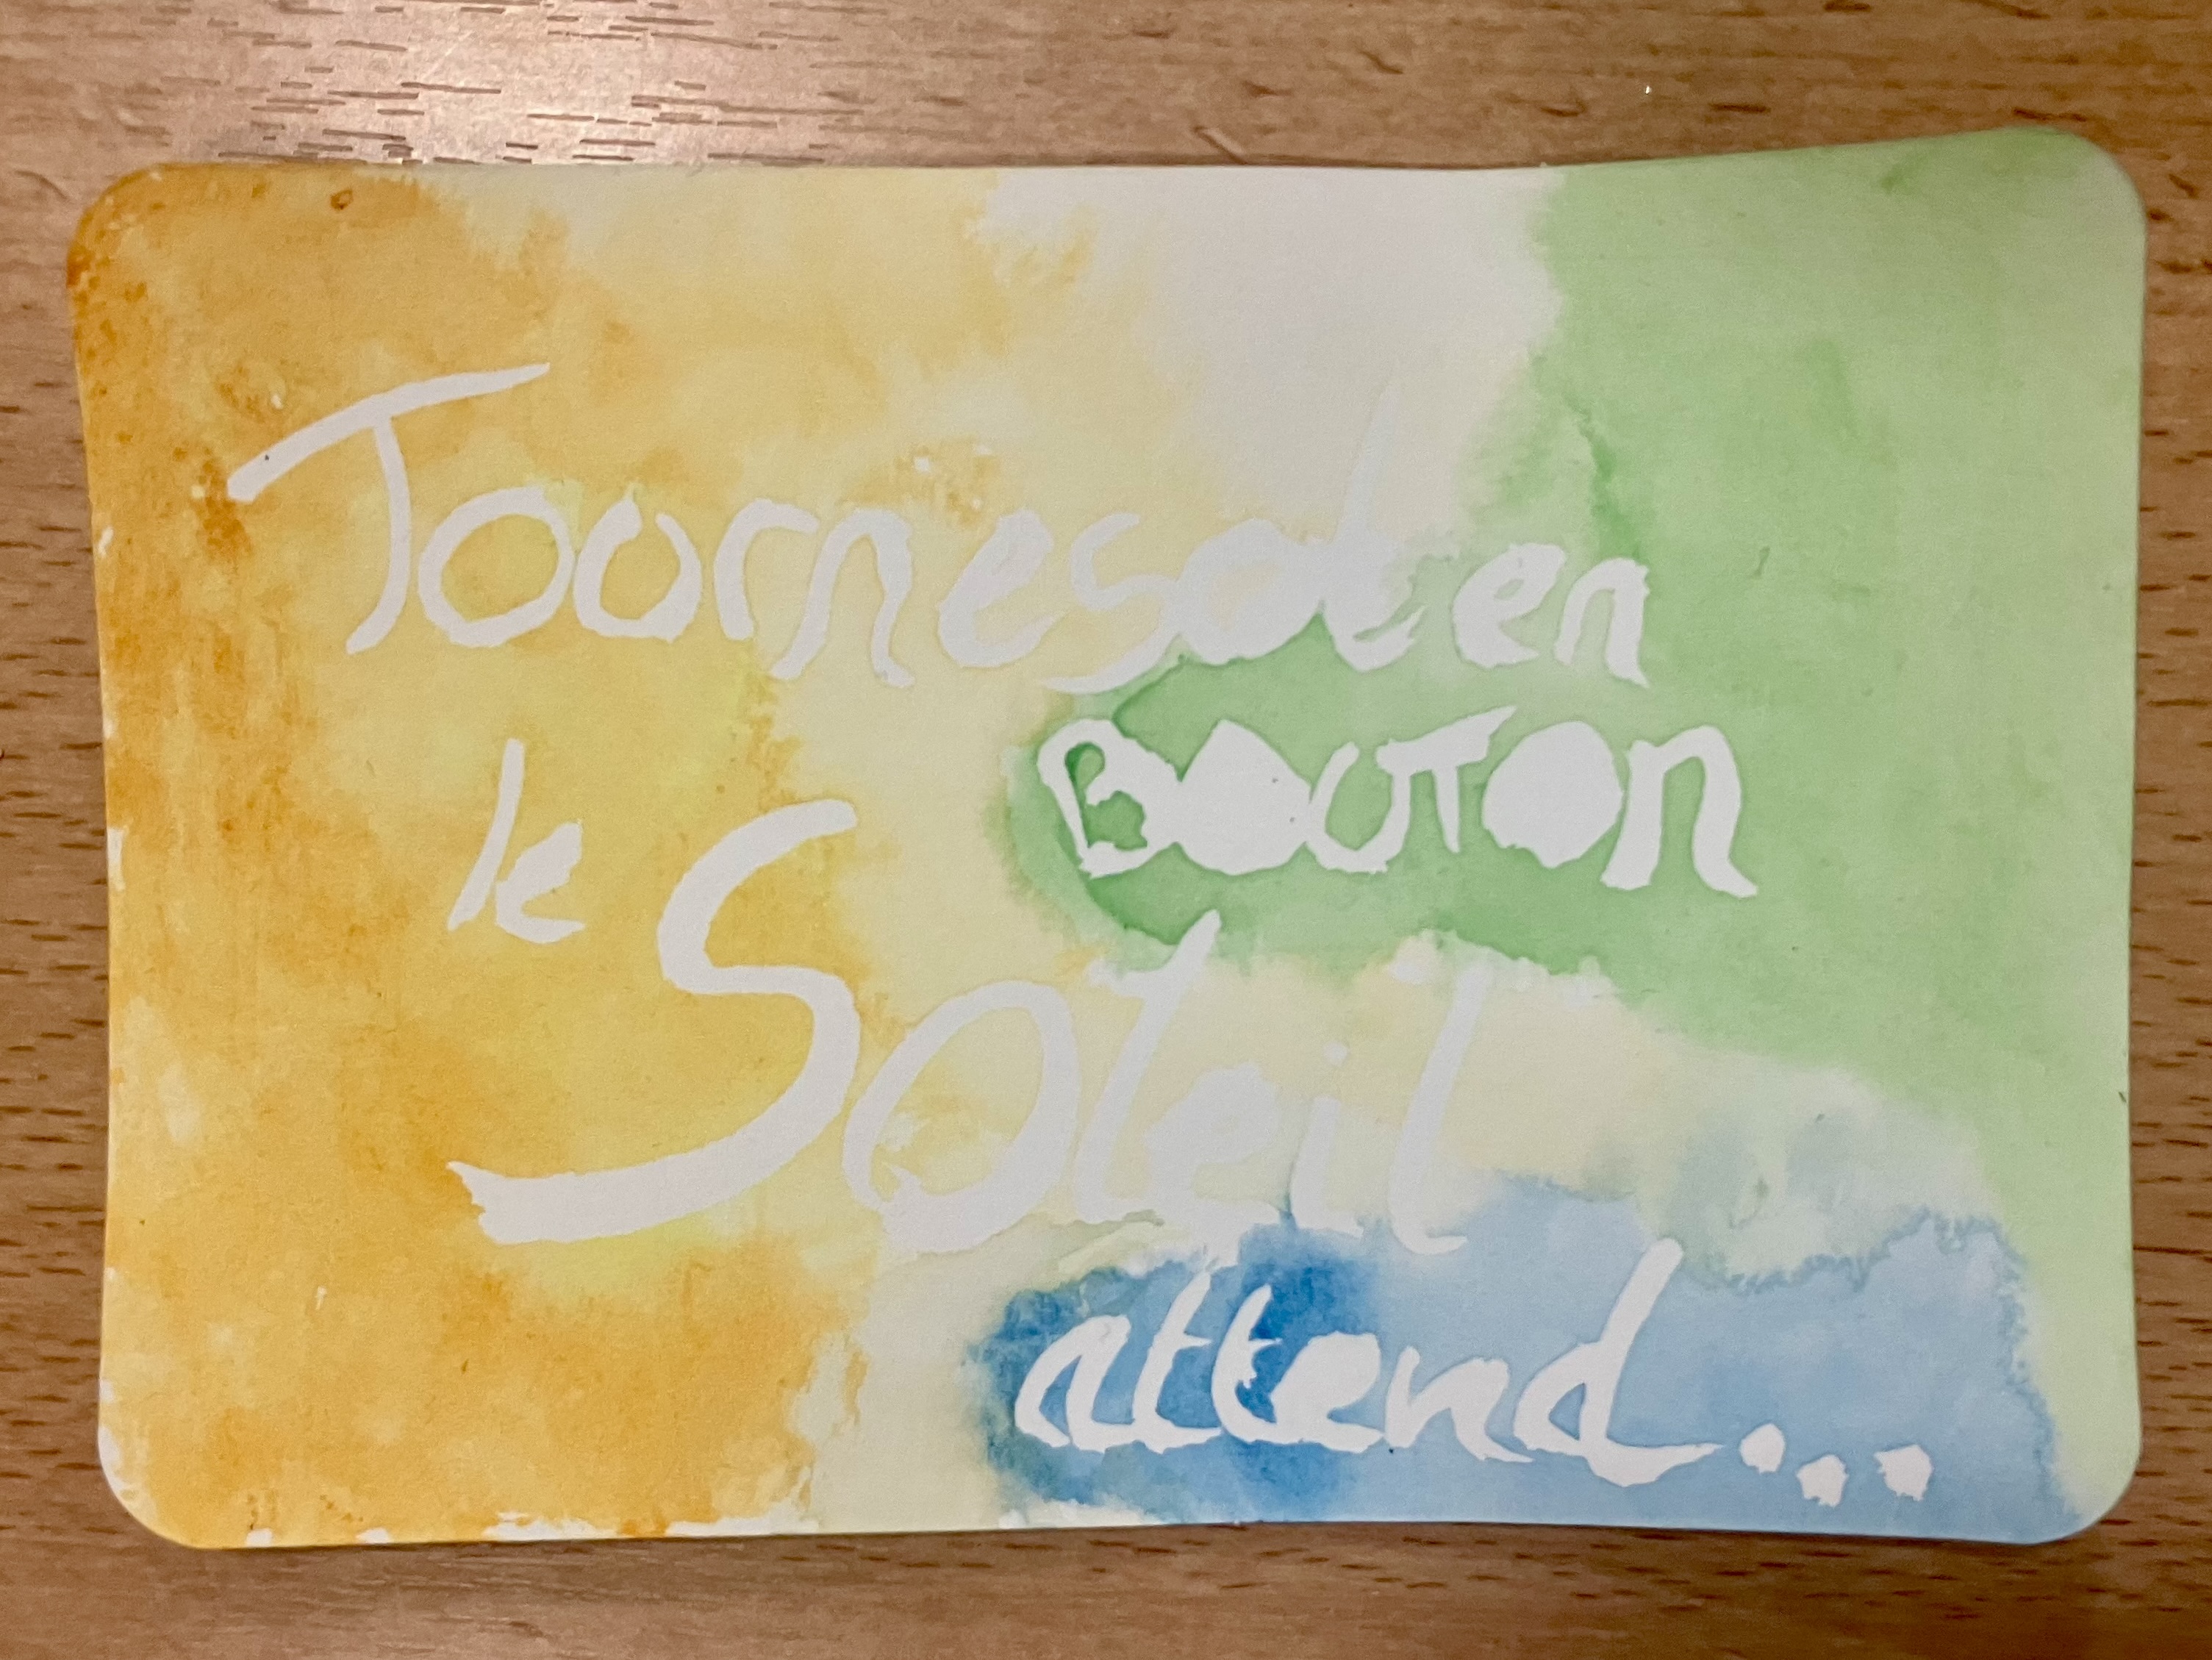 Tournesol en
BOUTON
le Soleil
attend...